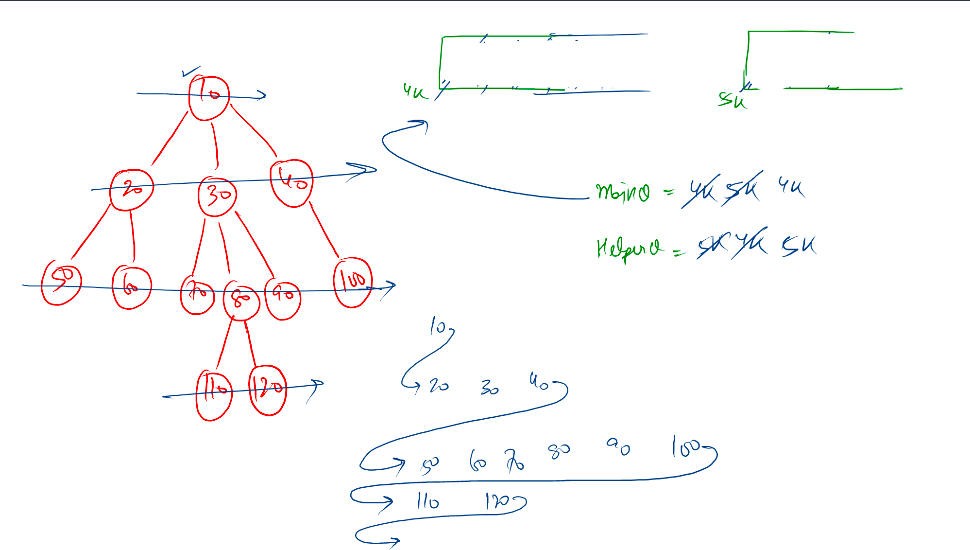 10
20 30 40
50 60 70 80 90 100
110 120
4K
5K
MainQ = 4K 5K 4K
HelperQ = 5K 4K 5K
10
20 30 40
50 60 70 80 90 100
110 120